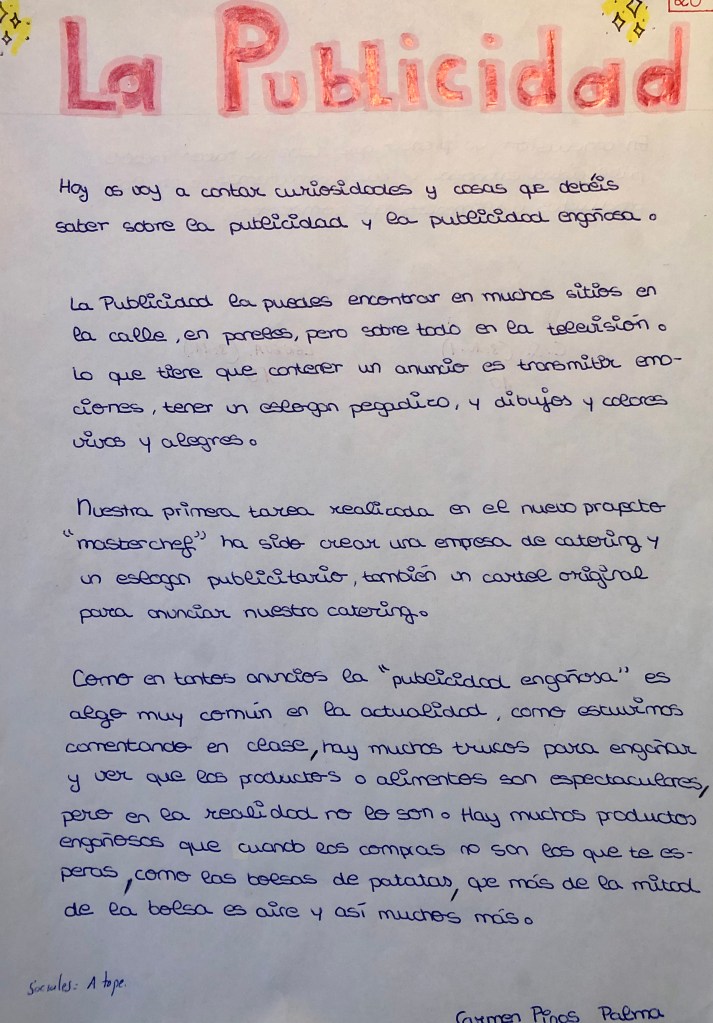 La Publicidad
Hoy os voy a contar curiosidades y cosas que debéis
saber sobre la publicidad y la publicidad engañosa.
La Publicidad la puedes encontrar en muchos sitios en
la calle, en paneles, pero sobre todo en la televisión.
Lo que tiene que contener un anuncio es transmitir emo-
ciones, tener un eslogan pegadizo, y dibujos y colores
vivos y alegres.
Nuestra primera tarea realizada en el nuevo proyecto
"masterchef" ha sido crear una empresa de catering y
un eslogan publicitario, también un cartel original
para anunciar nuestro catering.
Como en tantos anuncios la "publicidad engañosa" es
algo muy común en la actualidad, como estuvimos
comentando en clase, hay muchos trucos para engañar
y ver que los productos o alimentos son espectaculares,
pero en la realidad no lo son. Hay muchos productos
engañosos que cuando los compras no son los que te es-
peras, como las bolsas de patatas, que más de la mitad
de la bolsa es aire y así muchos más.
Sociales: A tope.
Carmen Pinos Palma